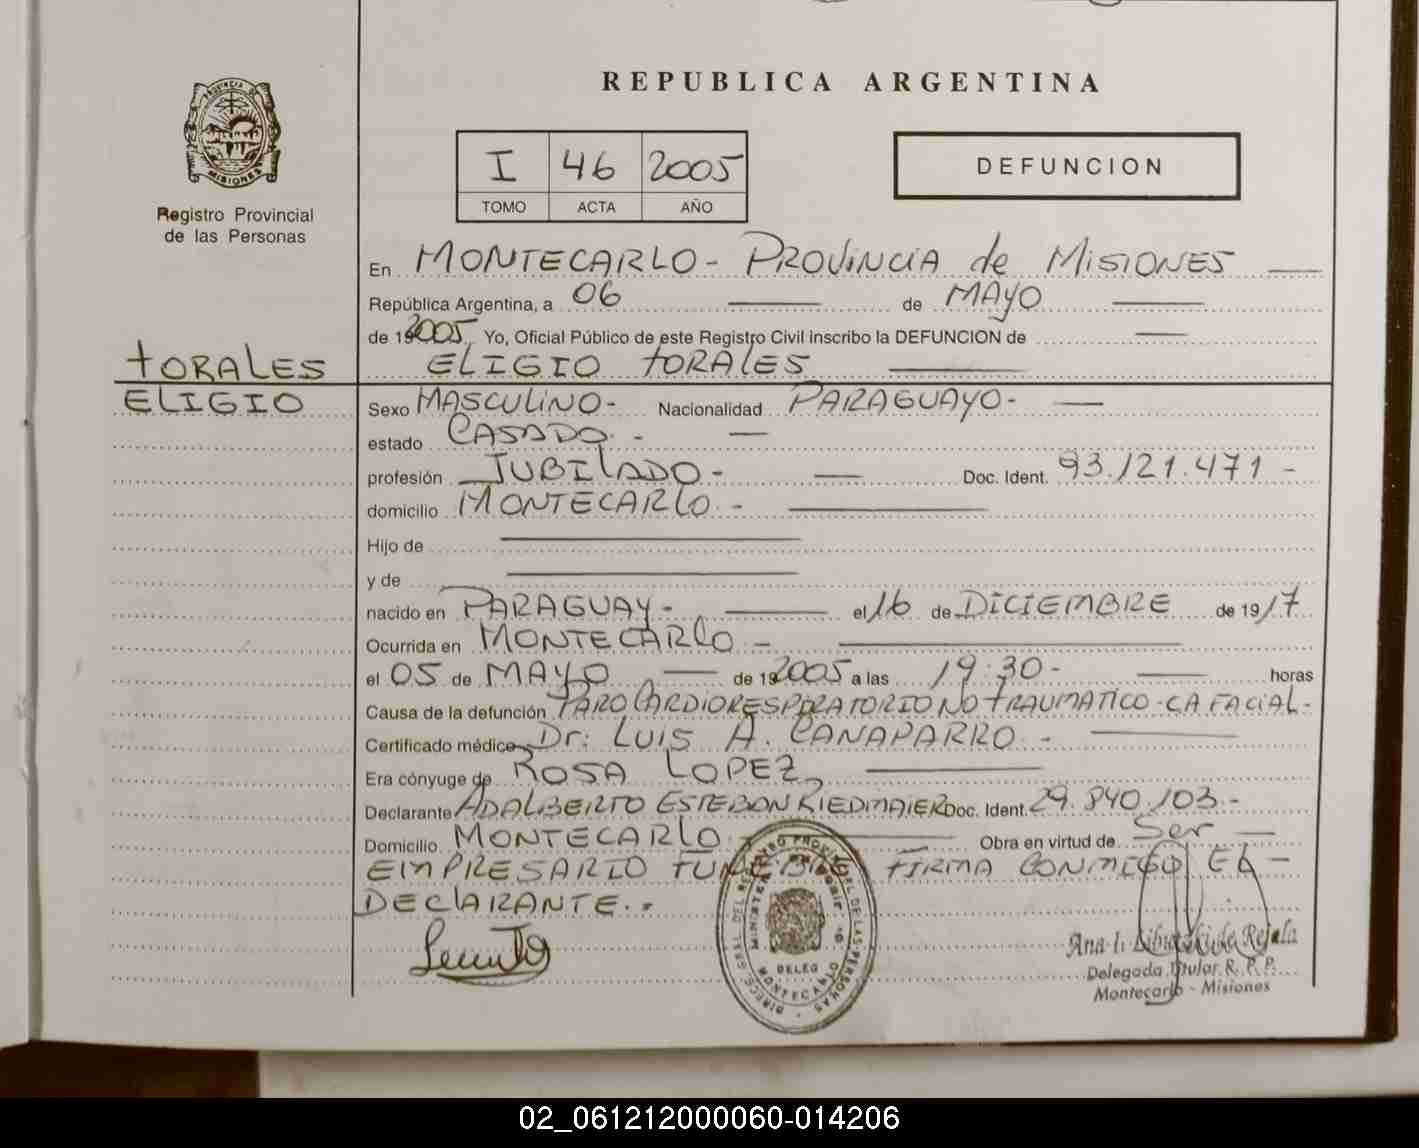 REPUBLICA ARGENTINA
PROVINCIA DE
MISIONES
Registro Provincial
de las Personas
I 46 2005
TOMO ACTA AÑO
DEFUNCION
En MONTECARLO - PROVINCIA de MISIONES
República Argentina, a 06 de MAYO
de 2005 Yo, Oficial Público de este Registro Civil inscribo la DEFUNCION de
TORALES
ELIGIO
ELIGIO TORALES
Sexo MASCULINO - Nacionalidad PARAGUAYO -
estado CASADO. -
profesión JUBILADO - Doc. Ident. 93.121.471 -
domicilio MONTECARLO. -
Hijo de
y de
nacido en PARAGUAY - el 16 de DICIEMBRE de 1917
Ocurrida en MONTECARLO -
el 05 de MAYO de 2005 a las 19:30 - horas
Causa de la defunción PARO CARDIORESPIRATORIO NO TRAUMATICO - CA FACIAL -
Certificado médico Dr: LUIS A. CANAPARRO. -
Era cónyuge de ROSA LOPEZ
Declarante ADALBERTO ESTEBAN RIEDMAIER Doc. Ident. 29.840.103. -
Domicilio MONTECARLO. Obra en virtud de Ser
EMPRESARIO FUNEBRE FIRMA CONMIGO EL -
DECLARANTE. -
DELEG
MONTECARLO
Ana L. de Rejala
Delegada Titular R. P. P.
Montecarlo - Misiones
02_061212000060-014206